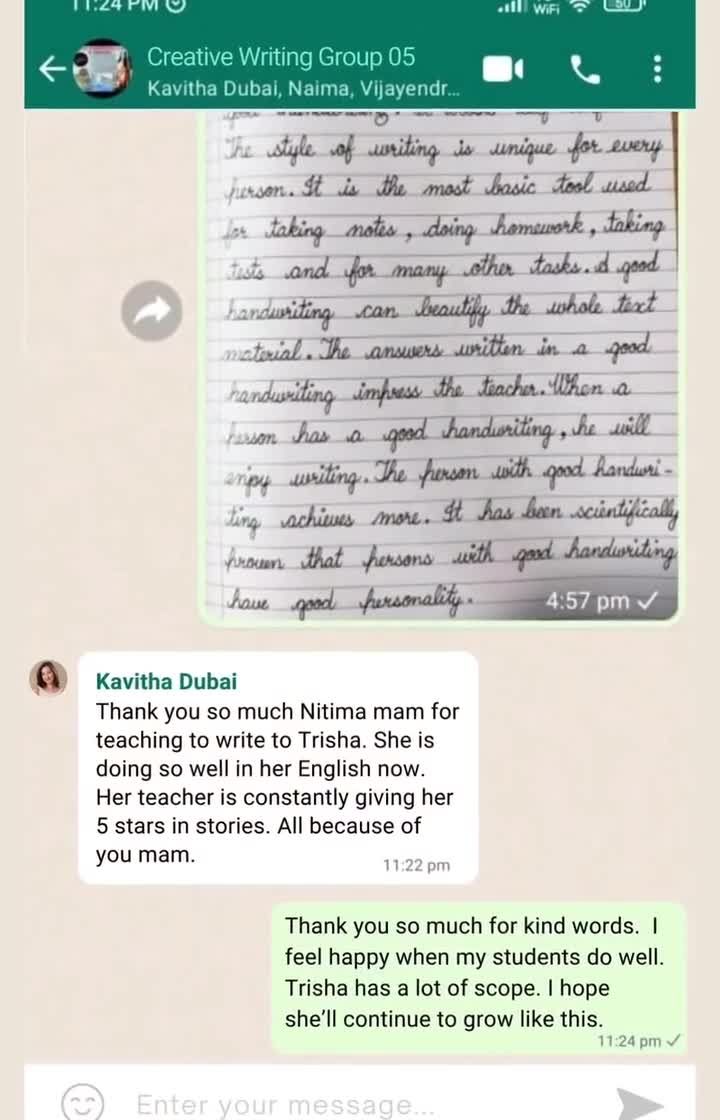 11:24 PM
WiFi
50
Creative Writing Group 05
Kavitha Dubai, Naima, Vijayendr...
The style of writing is unique for every
person. It is the most basic tool used
for taking notes, doing homework, taking
tests and for many other tasks. A good
handwriting can beautify the whole text
material. The answers written in a good
handwriting impress the teacher. When a
person has a good handwriting, he will
enjoy writing. The person with good handwri-
ting achieves more. It has been scientifically
proven that persons with good handwriting
have good personality.
4:57 pm
Kavitha Dubai
Thank you so much Nitima mam for
teaching to write to Trisha. She is
doing so well in her English now.
Her teacher is constantly giving her
5 stars in stories. All because of
you mam.
11:22 pm
Thank you so much for kind words. I
feel happy when my students do well.
Trisha has a lot of scope. I hope
she'll continue to grow like this.
11:24 pm
Enter your message...